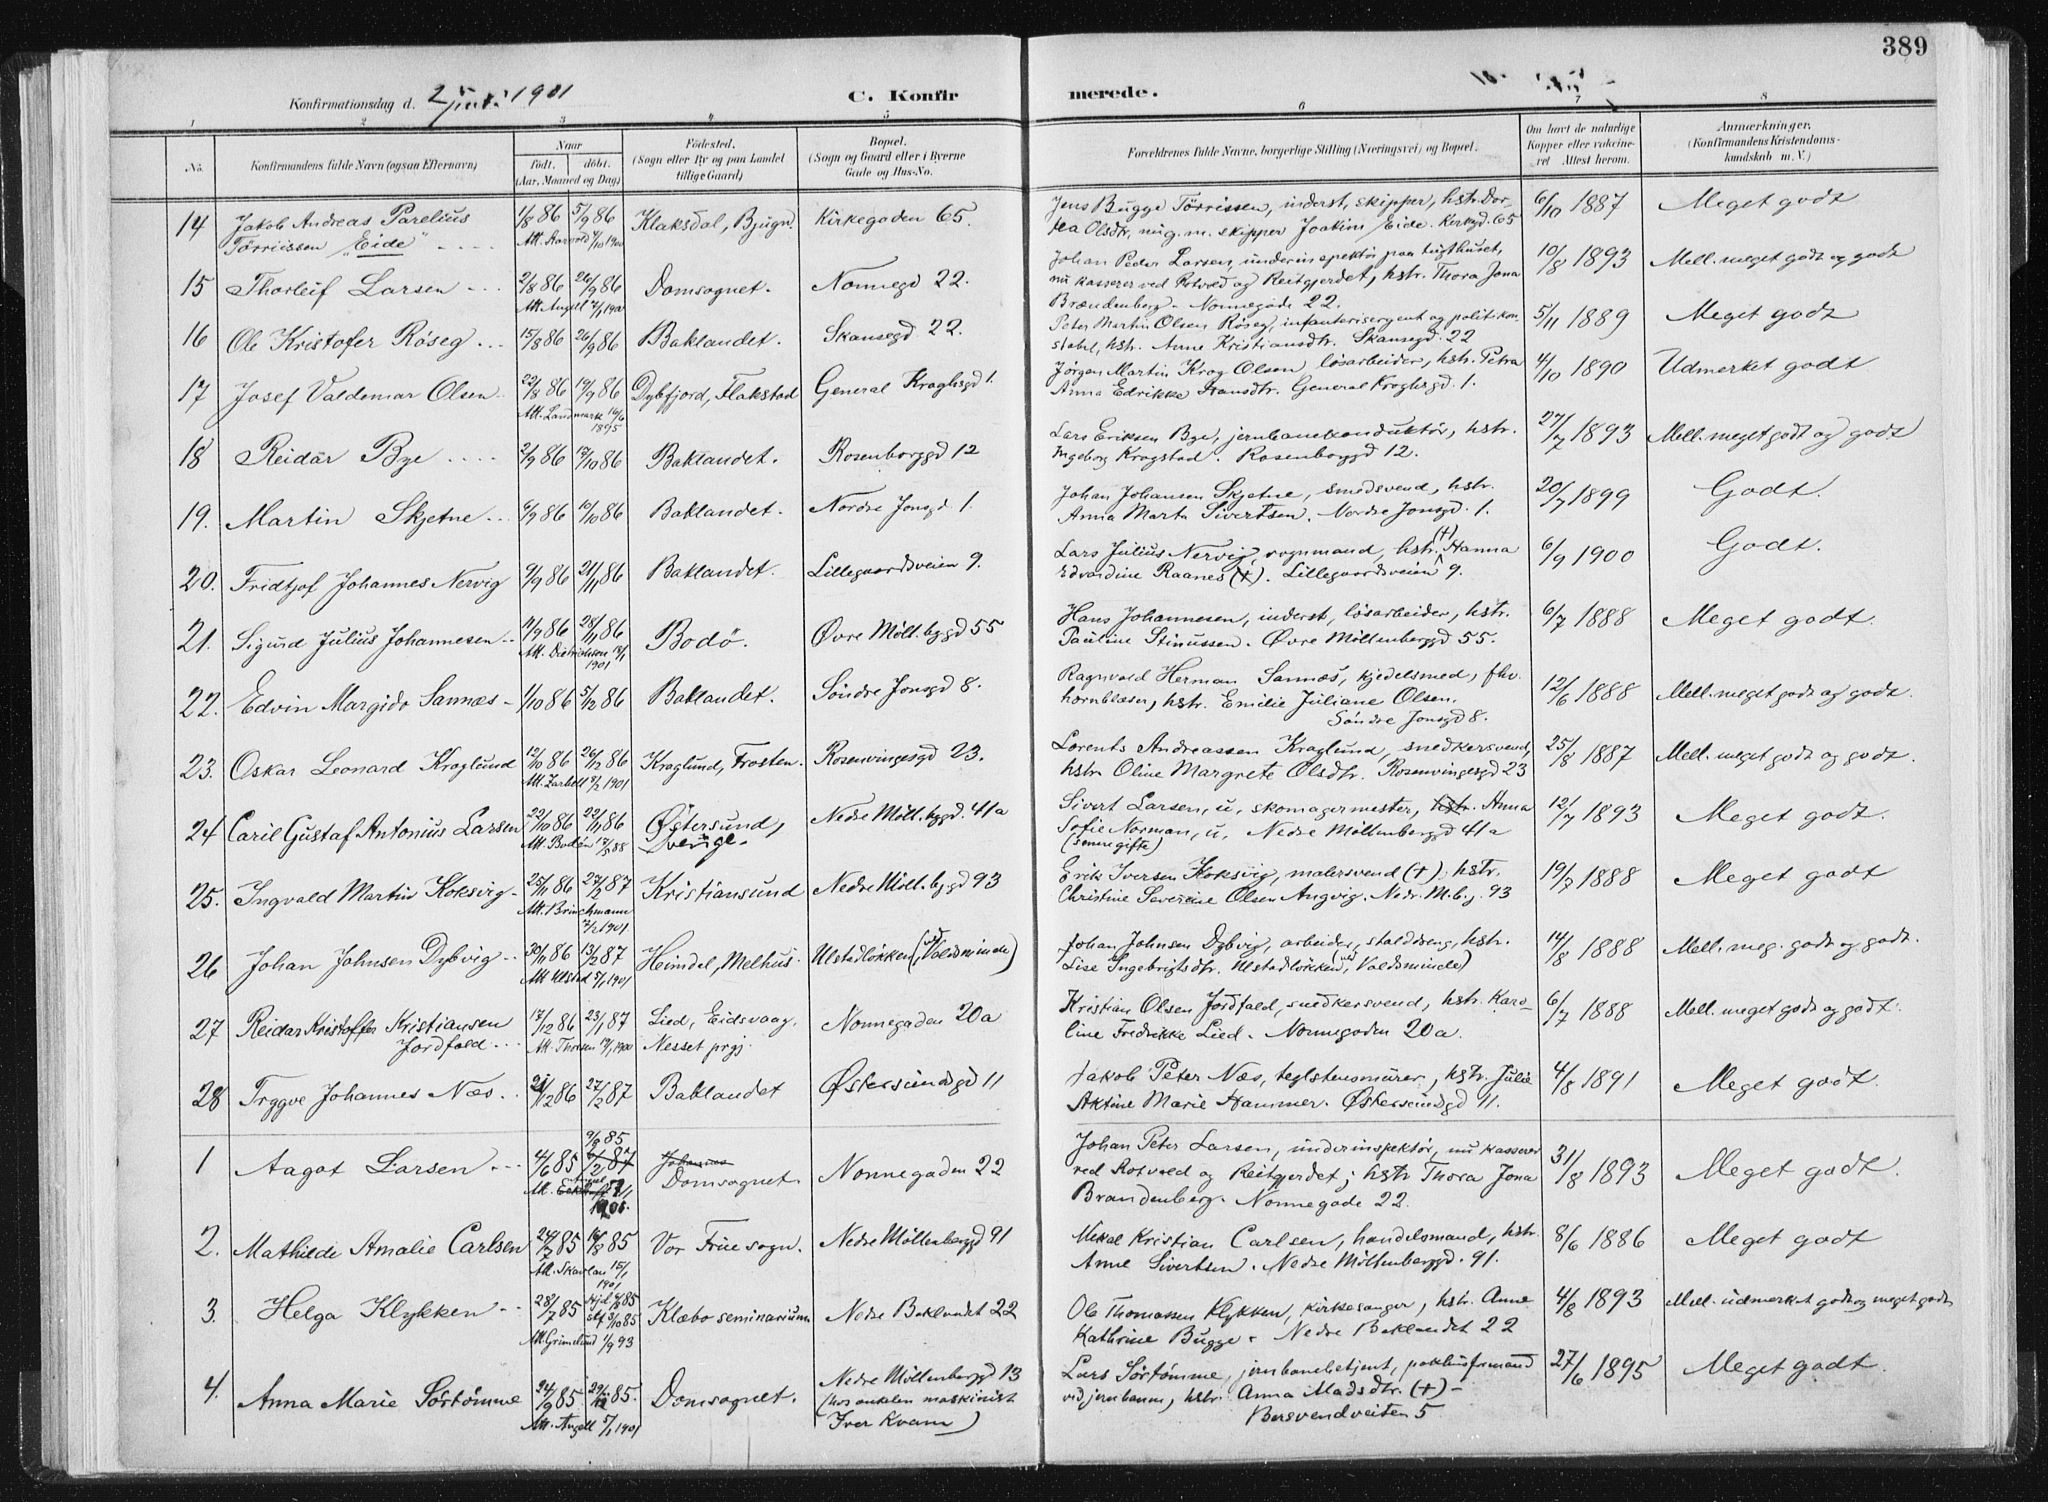 389
Konfirmationsdag d. 2 juni 1901
C. Konfirmerede.
1 2 3 4 5 6 7 8
No.
Konfirmandens fulde Navn (ogsaa Efternavn)
Naar
Født. døbt.
(Aar, Maaned og Dag)
Fødested.
(Sogn eller By og paa Landet
tillige Gaard)
Bopæl.
(Sogn og Gaard eller i Byerne
Gade og Hus-No.
Forældrenes fulde Navne, borgerlige Stilling (Næringsvei) og Bopæl.
Om havt de naturlige
Kopper eller vakcine-
ret Attest herom.
Anmærkninger.
(Konfirmandens Kristendoms-
kundskab m. V.)
14 Jakob Andreas Parelius 1/8 86 5/9 86 Klaksdal, Bjugn. Kirkegaden 65. Jens Bugge Törrissen, inderst, skipper, hstr. Dor- 6/10 1887 Meget godt
Törrissen "Eide" tea Olsdtr., nu g. m. skipper Joakim Eide. Kirkegd. 65
15 Thorleif Larsen 2/8 86 26/9 86 Domsognet. Nonnegd 22. Johan Peder Larsen, underinspektör paa tugthuset, 10/8 1893 Mell. meget godt og godt
Att. Angell nu kasserer ved Rotvold og Reitgjerdet, hstr. Thora Jona
Brandenberg - Nonnegade 22.
16 Ole Kristofer Röseg 15/8 86 26/9 86 Baklandet. Skansegd. 22. Peter Martin Olsen Röseg, infanterisergent og politikon- 5/11 1889 Meget godt
stabel, hstr. Anne Kristiansdtr. Skansegd. 22
17 Josef Valdemar Olsen 22/8 86 19/9 86 Dybfjord, Flakstad General Kraghsgd 1. Jörgen Martin Krog Olsen, lösarbeider, hstr. Petra 4/10 1890 Udmerket godt
Att. Landmark 16/6 1895 Anna Edrikke Hansdtr. General Kraghsgd. 1.
18 Reidar Bye 2/9 86 17/10 86 Baklandet. Rosenborggd 12 Lars Eriksen Bye, jernbanekonduktör, hstr. 27/7 1893 Mell. meget godt og godt
Ingeborg Krogstad. Rosenborggd 12.
19. Martin Skjetne 6/9 86 10/10 86 Baklandet. Nordre Jonsgd 1. Johan Johansen Skjetne, smedsvend, hstr. 20/7 1899 Godt.
Anna Marta Sivertsen. Nordre Jonsgd. 1.
20. Fridtjof Johannes Nervig 9/9 86 21/11 86 Baklandet. Lillegaardsveien 9. Lars Julius Nervig, vognmand, hstr. (+) Hanna 6/9 1900 Godt.
Edvardine Raanes (+). Lillegaardsveien 9.
21. Sigurd Julius Johannesen 11/9 86 28/11 86 Bodö. Øvre Möll.bggd 55 Hans Johannesen, inderst, lösarbeider, hstr. 6/7 1888 Meget godt.
Att. Dietrichson 1901 Pauline Stinussen. Øvre Möllenberggd 55.
22. Edvin Margido Sannæs 1/10 86 5/12 86 Baklandet. Söndre Jonsgd 8. Ragnvald Herman Sannæs, kjedelsmed, fhv. 12/6 1888 Mell. meget godt og godt.
hornblæser, hstr. Emilie Juliane Olsen.
Söndre Jonsgd 8.
23. Oskar Leonard Kraglund 12/10 86 26/12 86 Kraglund, Frosten. Rosenvingesgd 23. Lorents Andreassen Kraglund, snedkersvend, 25/8 1887 Mell. meget godt og godt.
hstr. Oline Margrete Olsdtr. Rosenvingesgd 23
24 Caril Gustaf Antonius Larsen 22/10 86 22/11 86 Östersund, Nedre Möll.bggd. 41a Sivert Larsen, u, skomagermester, hstr. Anna 12/7 1893 Meget godt.
Att. Bodén Sverige. Sofie Norman, u. Nedre Möllenberggd 41a
(senere gifte)
25. Ingvald Martin Koksvig 25/11 86 27/2 87 Kristiansund Nedre Möll.bggd 93 Erik Iversen Koksvig, malersvend (+), hstr. 19/7 1888 Meget godt
Att. Brinchmann 1901 Christine Severine Olsen Angvig. Nedr. M.b.g. 93
26 Johan Johnsen Dybvig 30/11 86 13/2 87 Heimdal, Melhus. Ulstadlökken (ved Valdsminde) Johan Johnsen Dybvig, arbeider, stalddreng, hstr. 14/8 1888 Mell. meg. godt og godt.
Lise Ingebrigtsdtr. Ulstadlökken (ved Valdsminde)
27 Reidar Kristoffer Kristiansen 17/12 86 23/1 87 Lied, Eidsvaag, Nonnegaden 20a Kristian Olsen Jordfald, snedkersvend, hstr. Karo- 6/7 1888 Mell. meget godt og godt.
Jordfald Nesset prgj. line Fredrikke Lied. Nonnegaden 20a.
28 Tryggve Johannes Næs 21/12 86 27/2 87 Baklandet Østersundsgd 11 Jakob Peter Næs, teglstensmurer, hstr. Julie 4/8 1891 Meget godt.
Aktine Marie Hammer. Østersundsgd 11.
1 Aagot Larsen 4/6 85 9/8 85 Domsognet. Nonnegaden 22 Johan Peter Larsen, underinspektör, nu kasserer 31/8 1893 Meget godt.
ved Rotvold og Reitgjerdet; hstr Thora Jona
Brandenberg. Nonnegade 22.
2. Mathilde Amalie Carlsen 24/7 85 16/8 85 Vor Frue sogn. Nedre Möllenberggd 91 Mikal Kristian Carlsen, handelsmand, hstr. 8/6 1886 Meget godt
Att. Skavlan 15/1 1901 Anne Sivertsen. Nedre Möllenberggd. 91.
3. Helga Klykken 28/7 85 Klæbo seminarium Nedre Baklandet 22 Ole Thomassen Klykken, kirkesanger, hstr. Anne 4/8 1893 Mell. udmerket godt og meget godt
Att. Grimelund 1/9 93 Kathrine Bugge. Nedre Baklandet 22
4. Anna Marie Sörtömme 24/9 85 Domsognet. Nedre Möllenberggd 13 Lars Sörtömme, jernbanebetjent, pakhusformand 27/6 1895 Meget godt.
Att. Angell 5/1 1901 (hos onkelen maskinist ved jernbanen, hstr. Anna Madsdtr. (+) -
Iver Kvam) Bersvendveiten 5